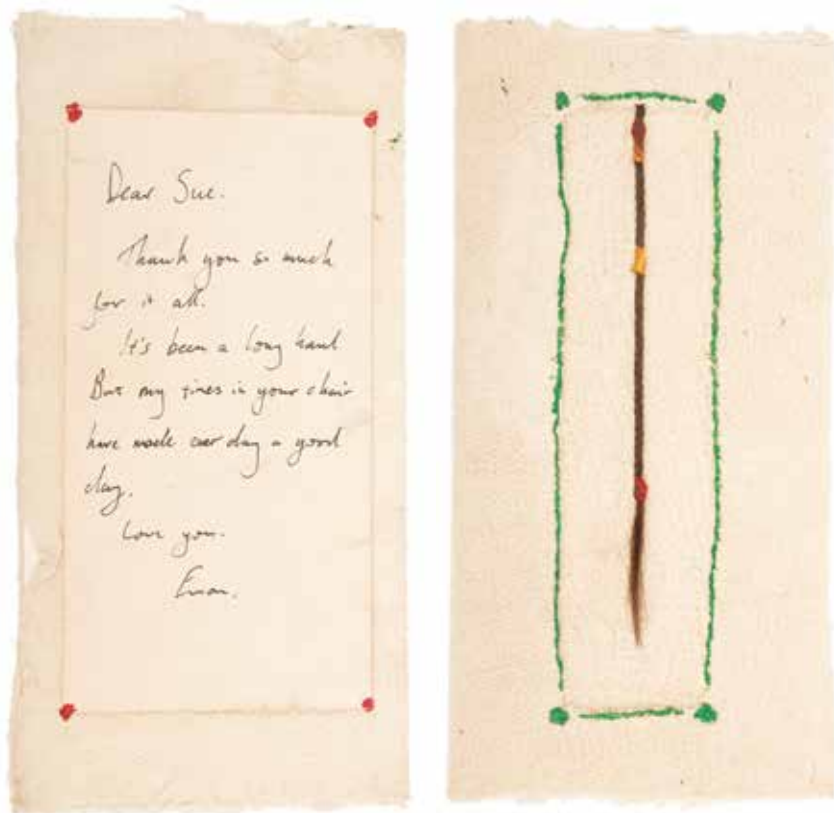 Dear Sue.
Thank you so much
for it all.
It's been a long haul
But my times in your chair
have made day a good
day.
Love you.
Ewan.